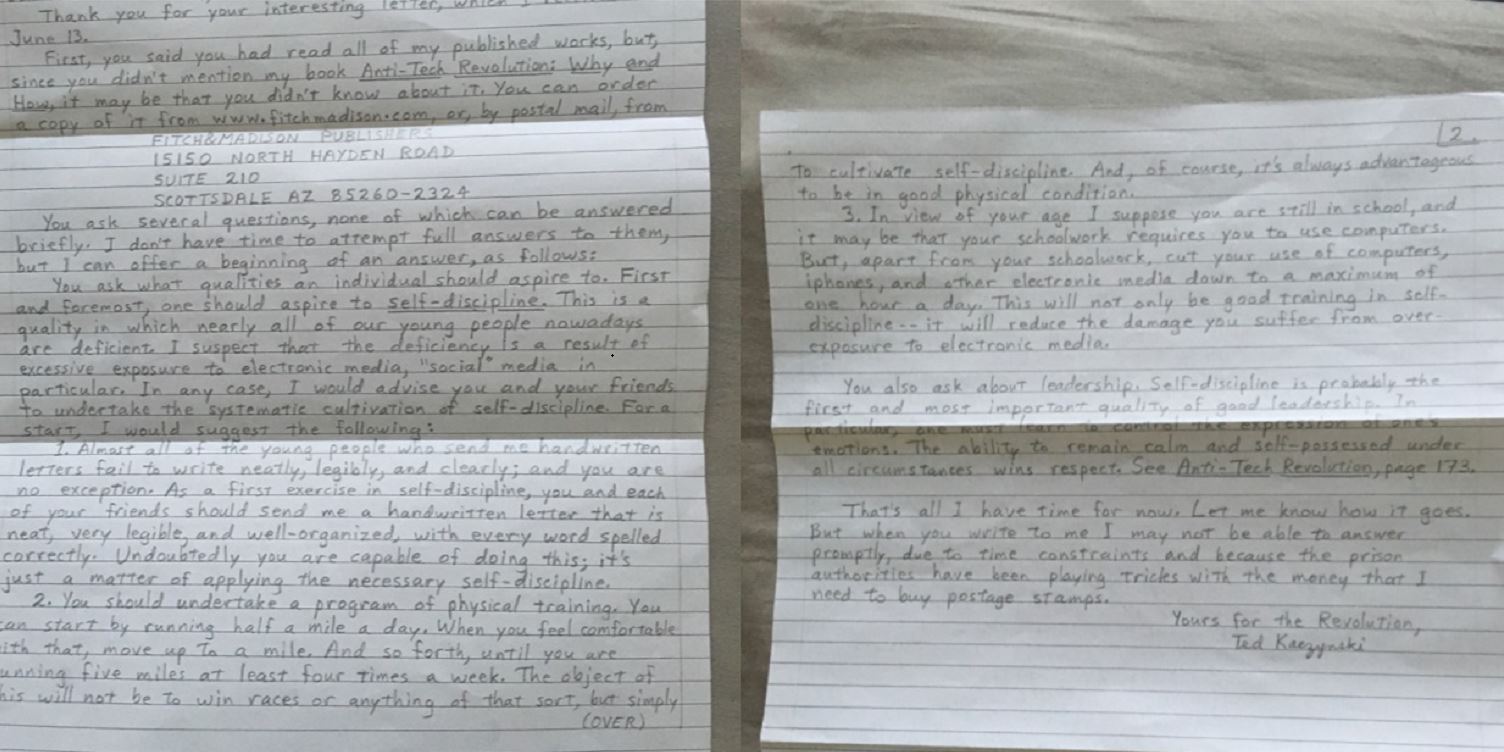 Thank you for your interesting letter, which I
June 13.
First, you said you had read all of my published works, but,
since you didn't mention my book Anti-Tech Revolution: Why and
How, it may be that you didn't know about it. You can order
a copy of it from www.fitchmadison.com, or, by postal mail, from
FITCH&MADISON PUBLISHERS
15150 NORTH HAYDEN ROAD
SUITE 210
SCOTTSDALE AZ 85260-2324
You ask several questions, none of which can be answered
briefly. I don't have time to attempt full answers to them,
but I can offer a beginning of an answer, as follows:
You ask what qualities an individual should aspire to. First
and foremost, one should aspire to self-discipline. This is a
quality in which nearly all of our young people nowadays
are deficient. I suspect that the deficiency is a result of
excessive exposure to electronic media, "social" media in
particular. In any case, I would advise you and your friends
to undertake the systematic cultivation of self-discipline. For a
start, I would suggest the following:
1. Almost all of the young people who send me handwritten
letters fail to write neatly, legibly, and clearly; and you are
no exception. As a first exercise in self-discipline, you and each
of your friends should send me a handwritten letter that is
neat, very legible, and well-organized, with every word spelled
correctly. Undoubtedly you are capable of doing this; it's
just a matter of applying the necessary self-discipline.
2. You should undertake a program of physical training. You
can start by running half a mile a day. When you feel comfortable
ith that, move up to a mile. And so forth, until you are
unning five miles at least four times a week. The object of
his will not be to win races or anything of that sort, but simply
(OVER)
2.
to cultivate self-discipline. And, of course, it's always advantageous
to be in good physical condition.
3. In view of your age I suppose you are still in school, and
it may be that your schoolwork requires you to use computers.
But, apart from your schoolwork, cut your use of computers,
iphones, and other electronic media down to a maximum of
one hour a day. This will not only be good training in self-
discipline -- it will reduce the damage you suffer from over-
exposure to electronic media.
You also ask about leadership. Self-discipline is probably the
first and most important quality of good leadership. In
particular, one must learn to control the expression of one's
emotions. The ability to remain calm and self-possessed under
all circumstances wins respect. See Anti-Tech Revolution, page 173.
That's all I have time for now. Let me know how it goes.
But when you write to me I may not be able to answer
promptly, due to time constraints and because the prison
authorities have been playing tricks with the money that I
need to buy postage stamps.
Yours for the Revolution,
Ted Kaczynski